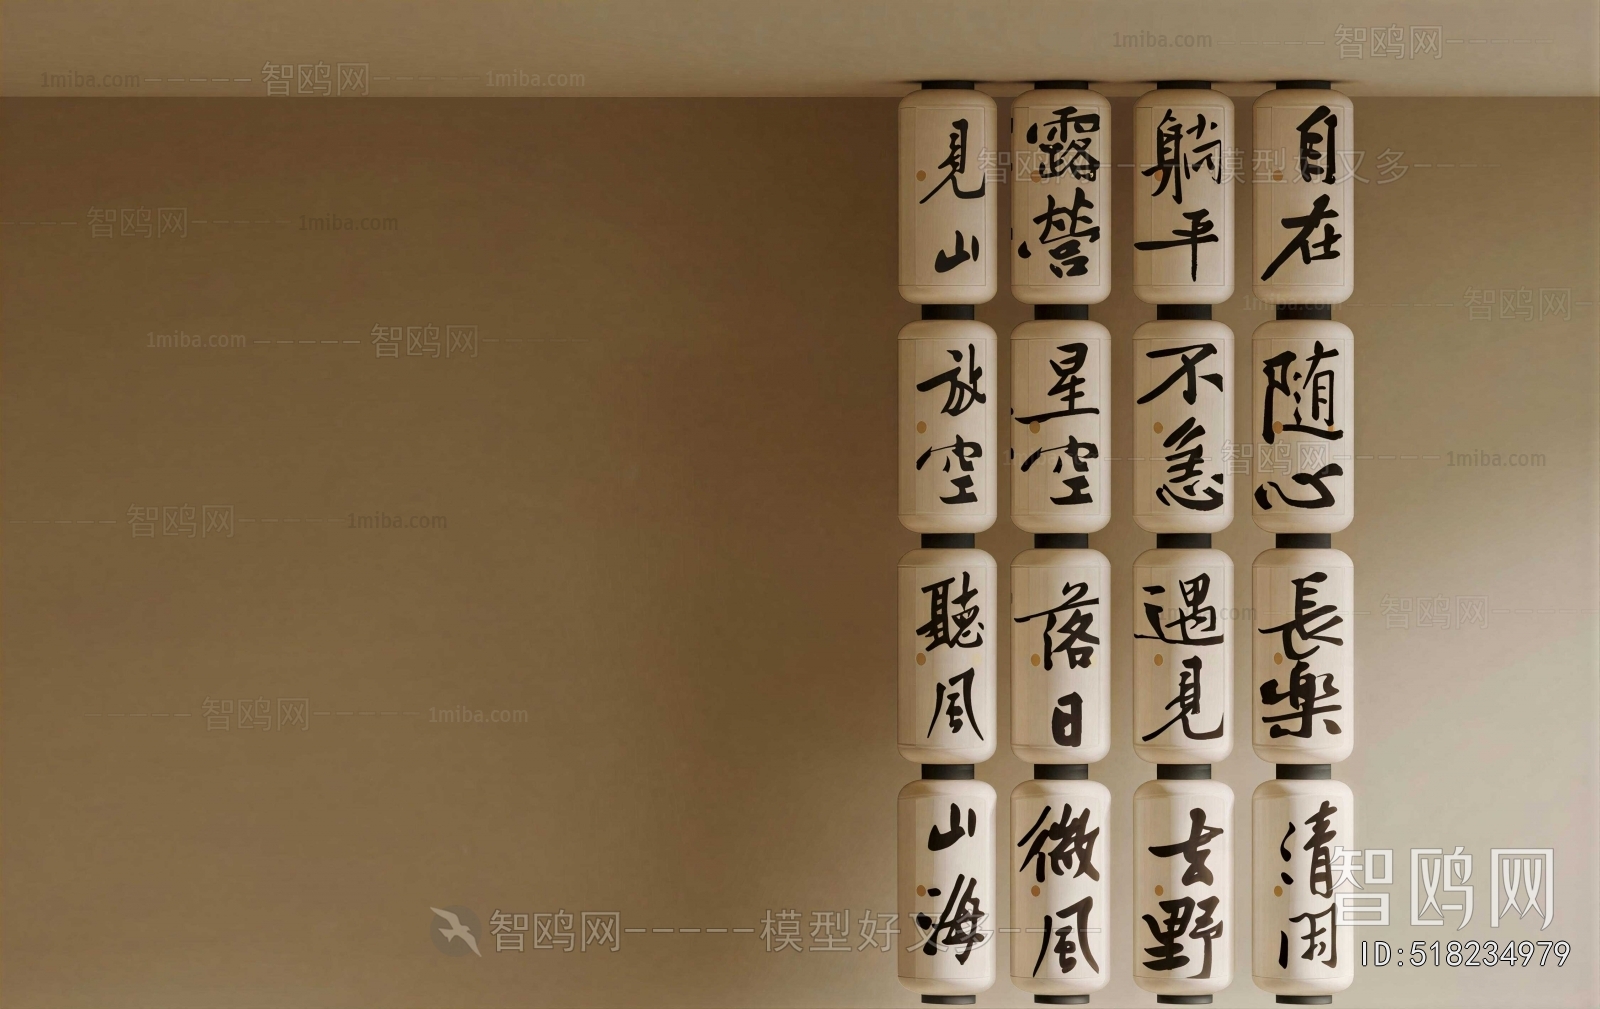 自在
随心
長樂
清闲
躺平
不急
遇見
去野
露营
星空
落日
微風
見山
放空
聽風
山海
1miba.com
智鸥网
1miba.com
1miba.com
智鸥网
智鸥网
模型好又多
智鸥网
1miba.com
1miba.com
智鸥网
1miba.com
智鸥网
智鸥网
1miba.com
智鸥网
1miba.com
1miba.com
智鸥网
智鸥网
1miba.com
智鸥网
模型好又多
智鸥网
ID:518234979